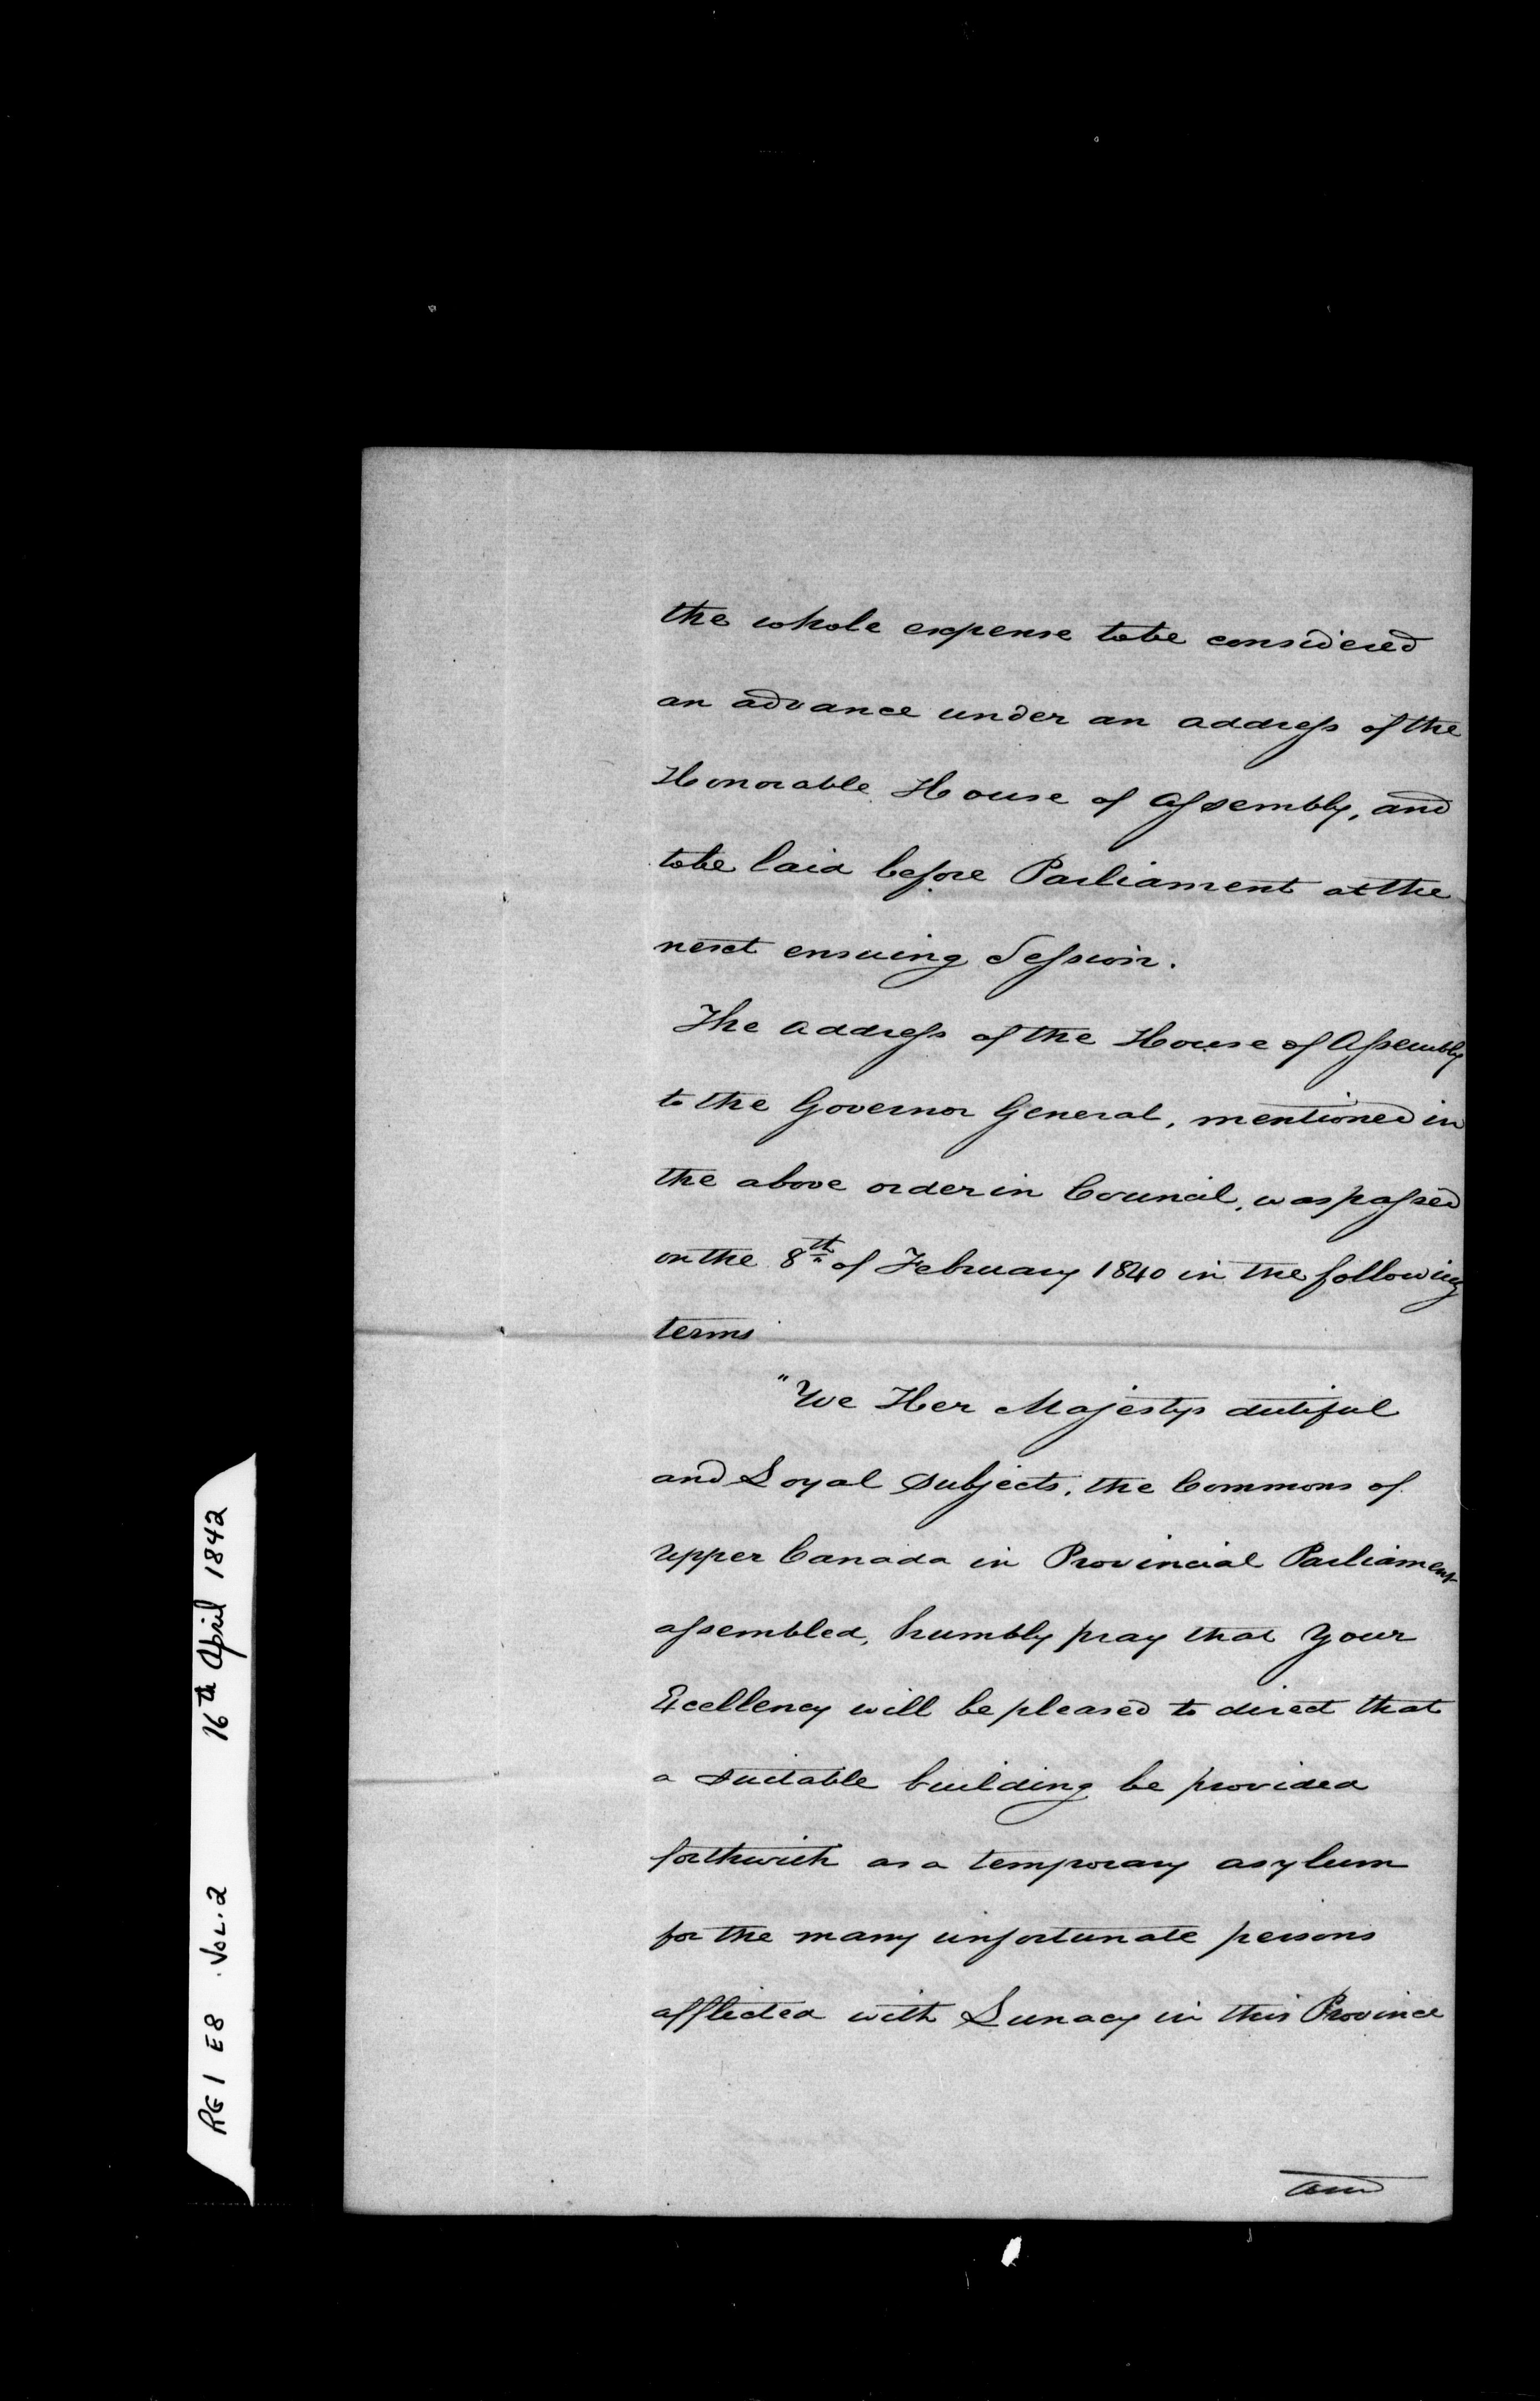 the whole expense to be considered
an advance under an address of the
Honorable House of Assembly, and
to be laid before Parliament at the
next ensuing Session.
The address of the House of Assembly
to the Governor General, mentioned in
the above order in Council, was passed
on the 8th of February 1840 in the following
terms
"We Her Majestys dutiful
and Loyal subjects, the Commons of
Upper Canada in Provincial Parliament
assembled, humbly pray that Your
Excellency will be pleased to direct that
a suitable building be provided
forthwith as a temporary asylum
for the many unfortunate persons
afflicted with Lunacy in this Province
and
RG 1 E8 VOL. 2 16th April 1842